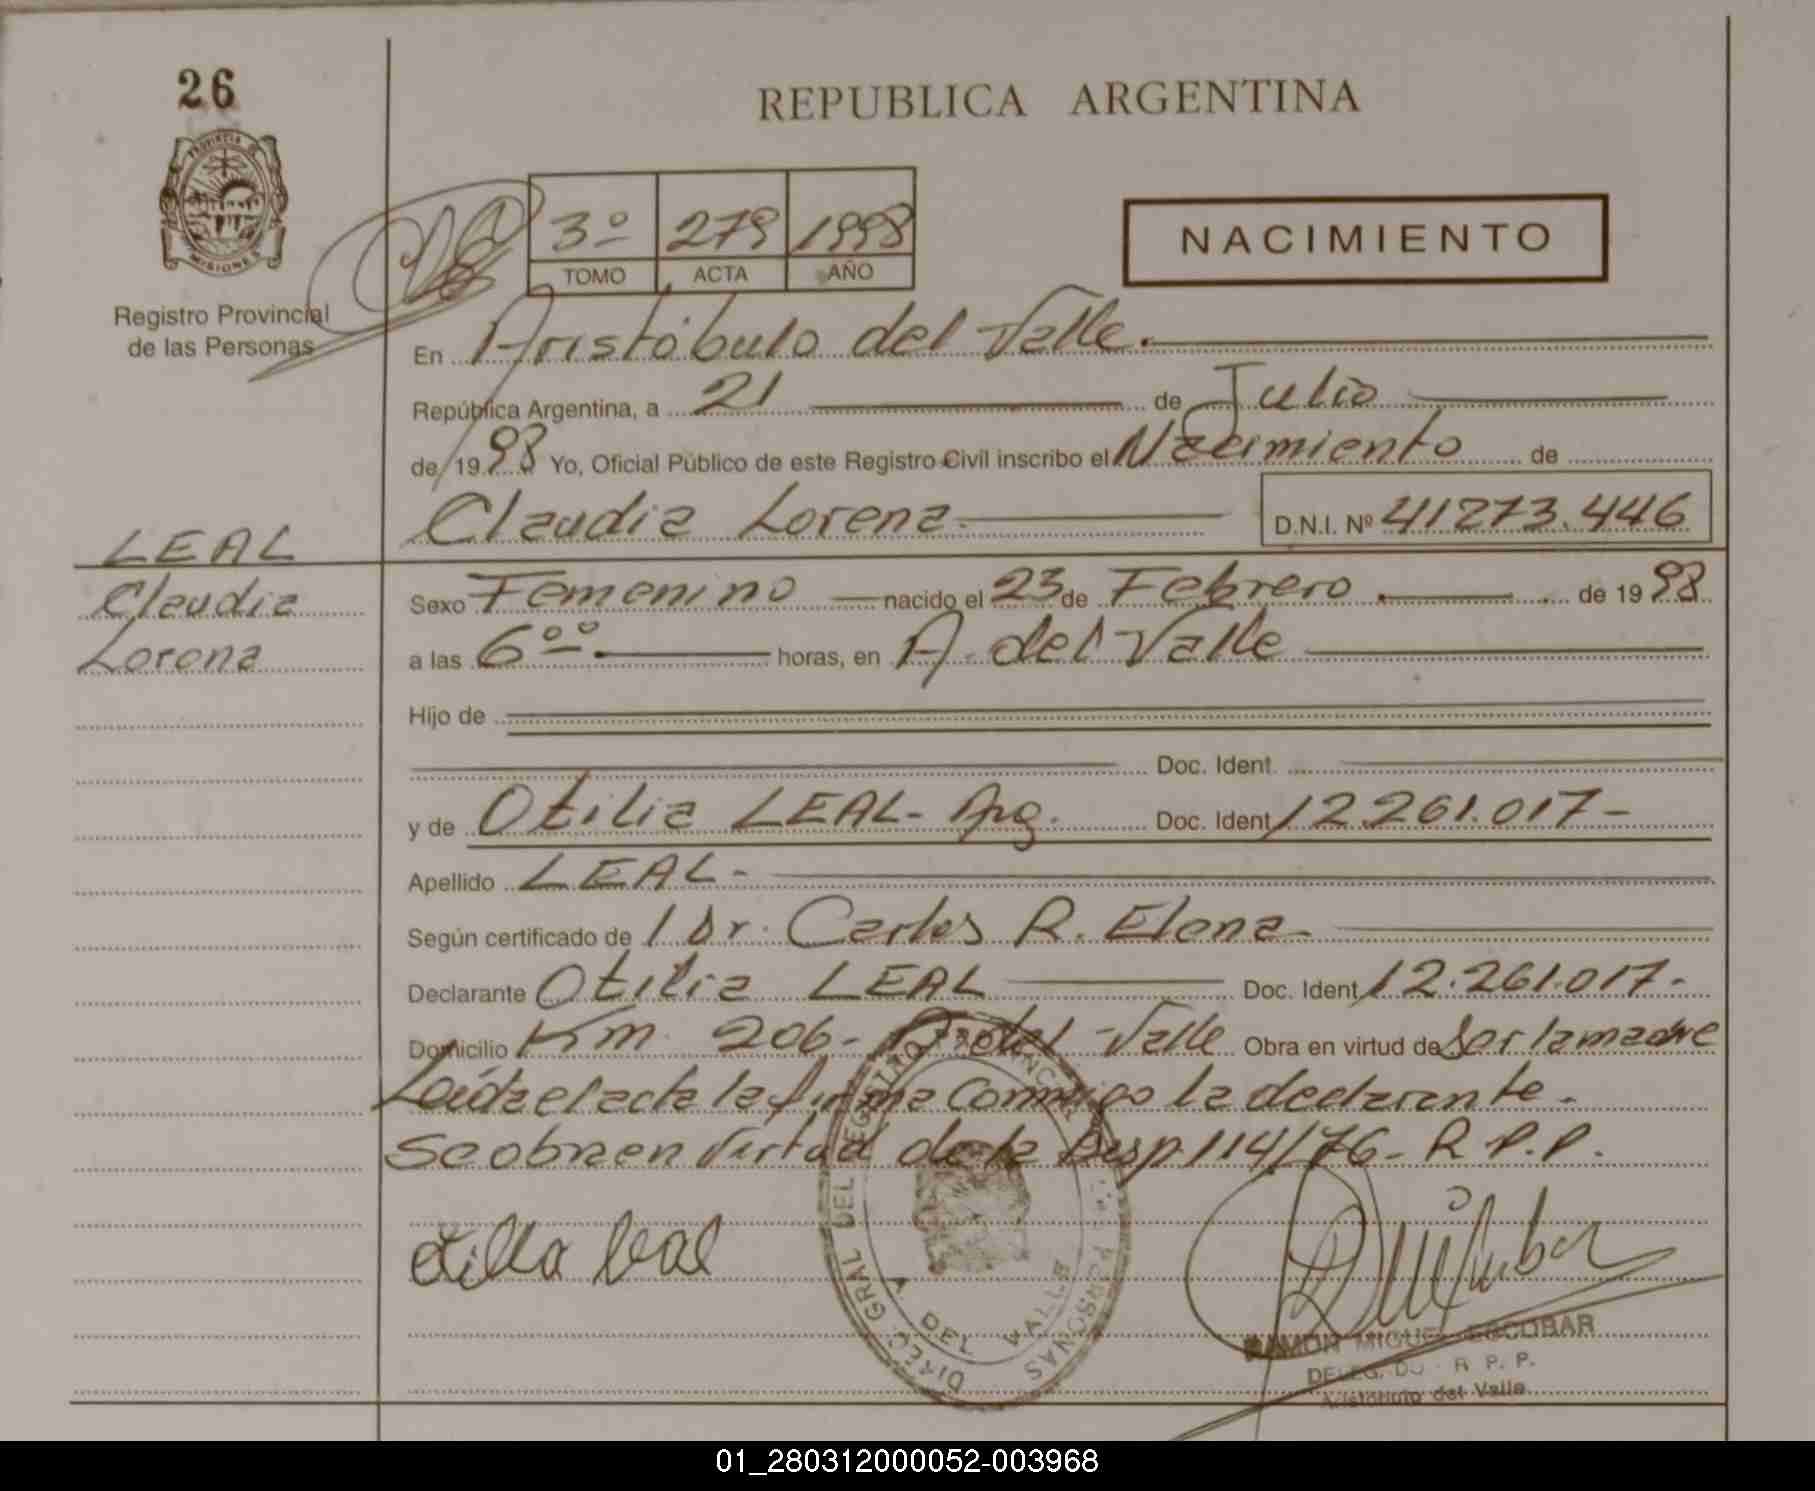 26
PROVINCIA DE
MISIONES
Registro Provincial
de las Personas
REPUBLICA ARGENTINA
3º 279 1998
TOMO ACTA AÑO
NACIMIENTO
En Aristóbulo del Valle.
República Argentina, a 21 de Julio
de 1998 Yo, Oficial Público de este Registro Civil inscribo el Nacimiento de
Claudia Lorena D.N.I. Nº 41273.446
LEAL
Claudia
Lorena
Sexo Femenino nacido el 23 de Febrero de 1998
a las 6ºº horas, en A. del Valle
Hijo de
Doc. Ident.
y de Otilia LEAL- Arg. Doc. Ident. 12.261.017-
Apellido LEAL-
Según certificado de l Dr. Carlos R. Elena
Declarante Otilia LEAL Doc. Ident. 12.261.017-
Domicilio Km. 206- A. del Valle Obra en virtud de Ser la madre
Leída el acta la firma conmigo la declarante.
Se obra en virtud de la Disp. 114/76- R.P.P.
DIREC. GRAL DEL REGISTRO PROVINCIAL PERSONAS
A DEL VALLE
RAMON MIGUEL ESCOBAR
R. P. P.
Aristóbulo del Valle
01_280312000052-003968